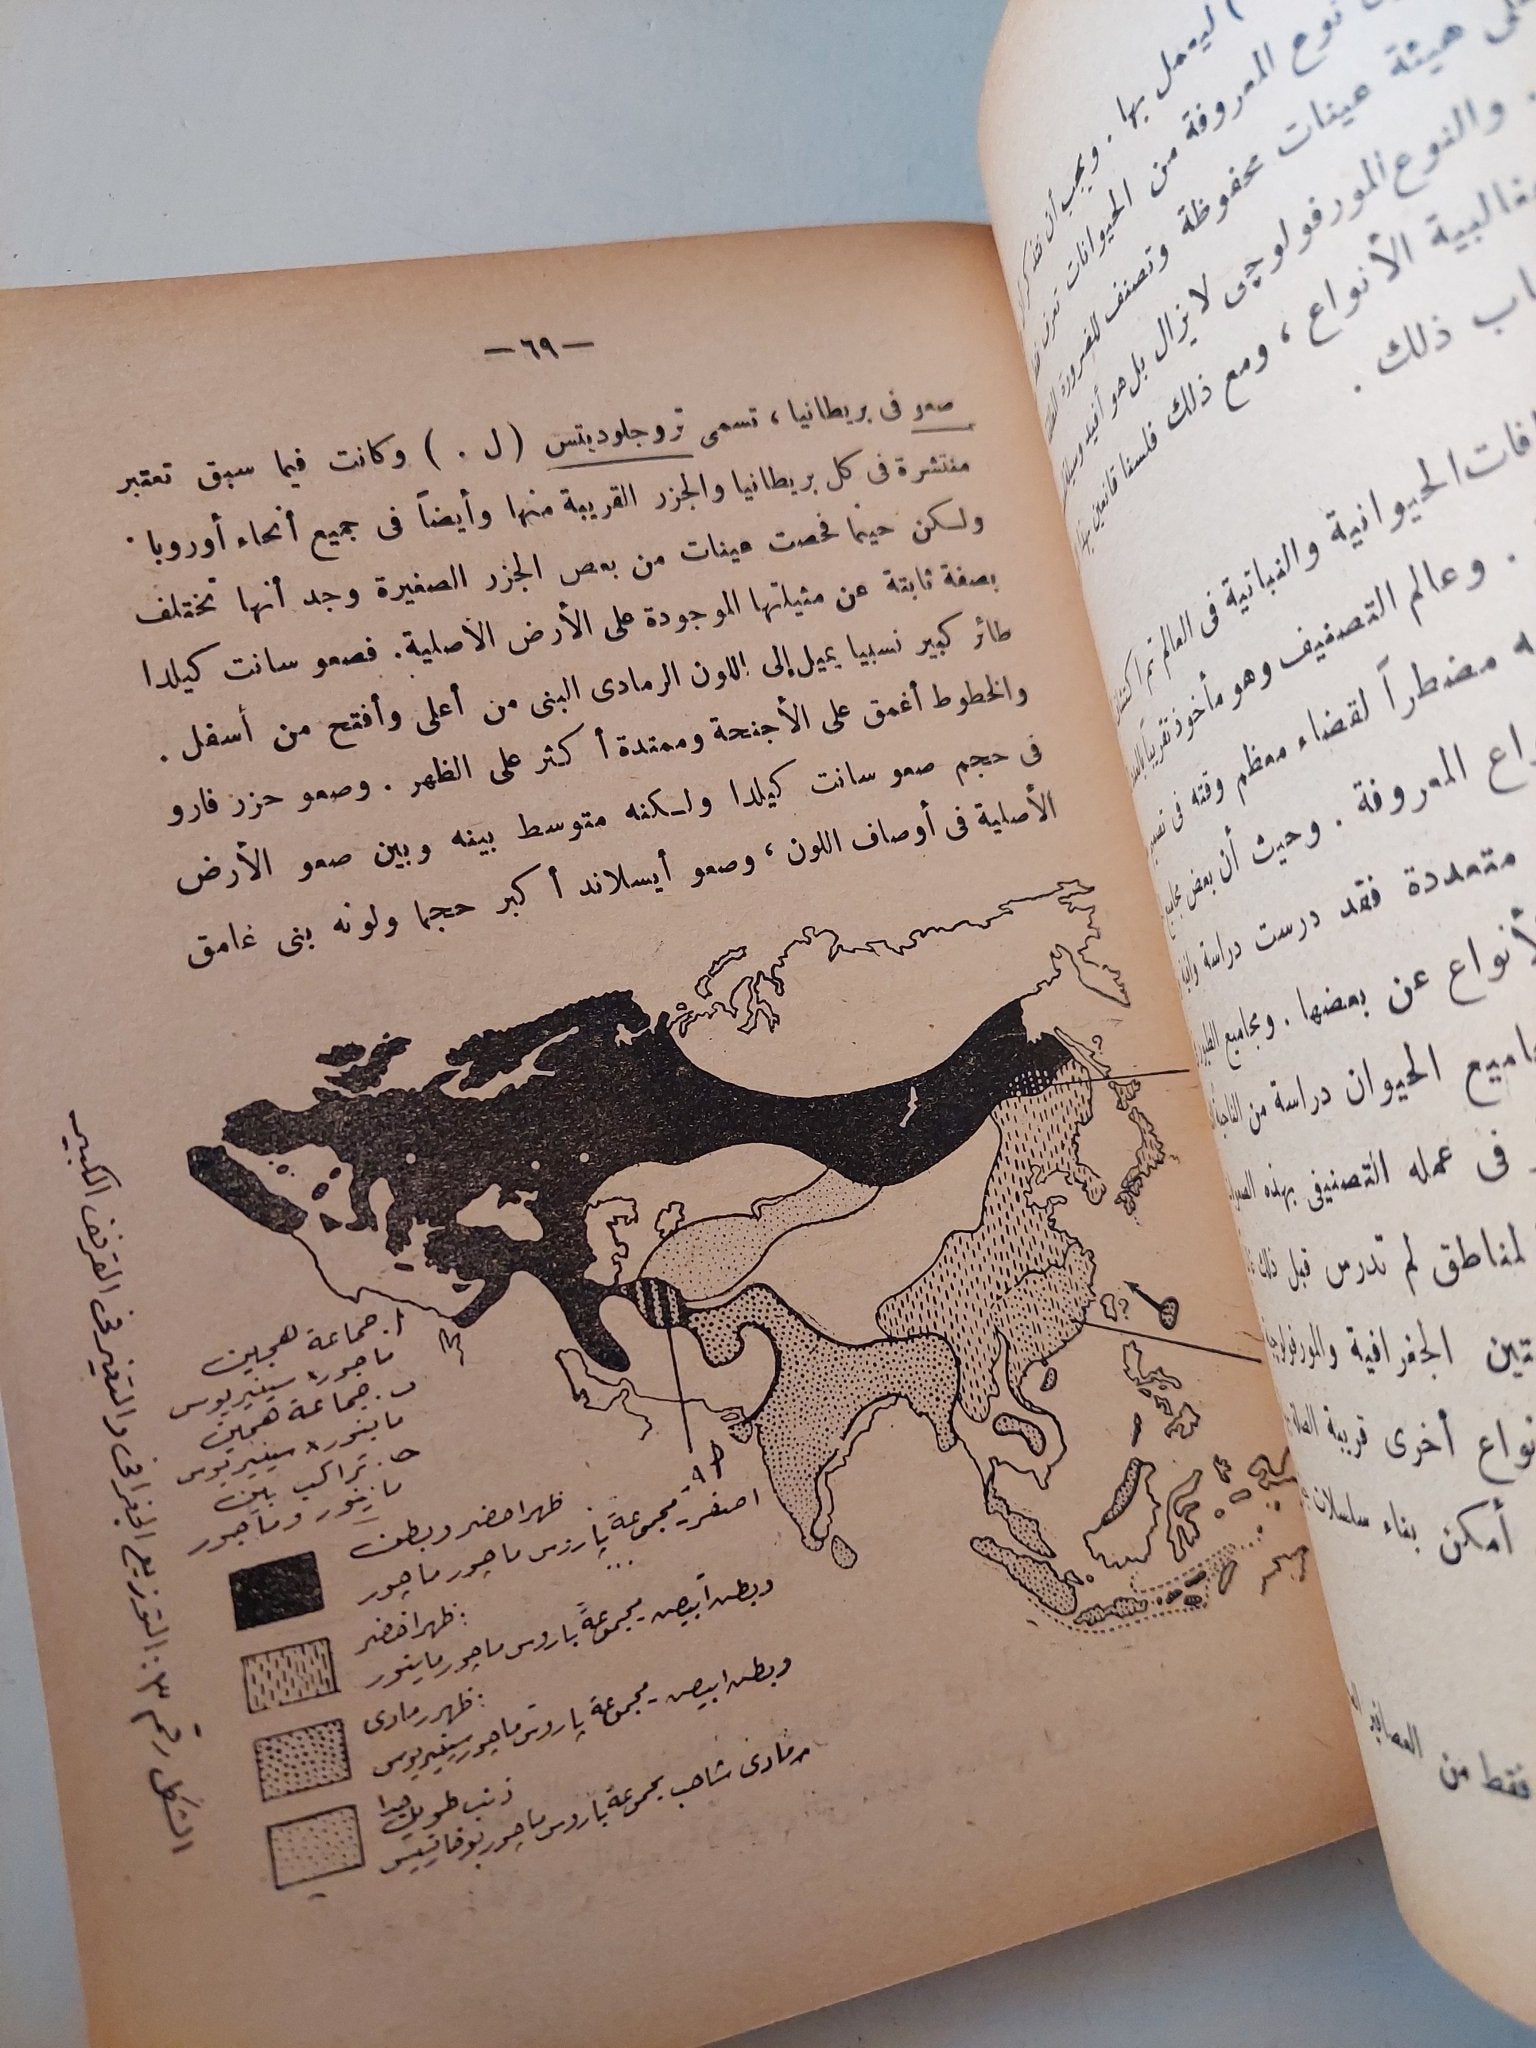 — ٦٩ —
صعو فى بريطانيا ، تسمى تروجلوديتس ( ل . ) وكانت فيما سبق تعتبر
منتشرة فى كل بريطانيا والجزر القريبة منها وأيضاً فى جميع أنحاء أوروبا .
ولكن حينما فحصت عينات من بعض الجزر الصغيرة وجد أنها تختلف
بصفة ثابتة عن مثيلتها الموجودة على الأرض الأصلية . فصعو سانت كيلدا
طائر كبير نسبيا يميل إلى اللون الرمادى البنى من أعلى وأفتح من أسفل .
والخطوط أغمق على الأجنحة وممتدة أكثر على الظهر . وصعو حزر فارو
فى حجم صعو سانت كيلدا ولكنه متوسط بينه وبين صعو الأرض
الأصلية فى أوصاف اللون ، وصعو أيسلاند أكبر حجما ولونه بنى غامق
أ . جماعة هجين
ماجور x سينيريوس
ب . جماعة هجين
ماينور x سينيريوس
ج . تراكب بين
ماينور وماجور
ظهر اخضر وبطن
اصفر - مجموعة پاروس ماجور ماجور
: ظهر اخضر
وبطن أبيض - مجموعة پاروس ماجور ماينور
: ظهر رمادى
وبطن ابيض - مجموعة پاروس ماجور سينيريوس
ذنب طويل جدا
رمادى شاحب مجموعة پاروس ماجور بوخارينسيس
الشكل رقم ٣ : التوزيع الجغرافى والتغير فى القرقف الكبير
ليعمل بها . ويجب أن نذكر
نوع المعروفة من الحيوانات تعرف فقط
هيئة عينات محفوظة وتصنف للضرورة
. والنوع المورفولوجى لا يزال بل هو أفيد وسيلة
الأنواع ، ومع ذلك فلسنا قانعين بهذا
ذلك .
الحيوانية والنباتية فى العالم تم
. وعالم التصنيف وهو مأخوذ تقريباً
مضطراً لقضاء معظم وقته فى
المعروفة . وحيث أن بعض
متعددة فقد درست دراسة
الأنواع عن بعضها . ومجاميع الطيور
الحيوان دراسة من
فى عمله التصنيفى بهذه
لمناطق لم تدرس قبل ذلك
الجغرافية
أخرى قريبة
أمكن بناء سلسلات
فقط من العصافير